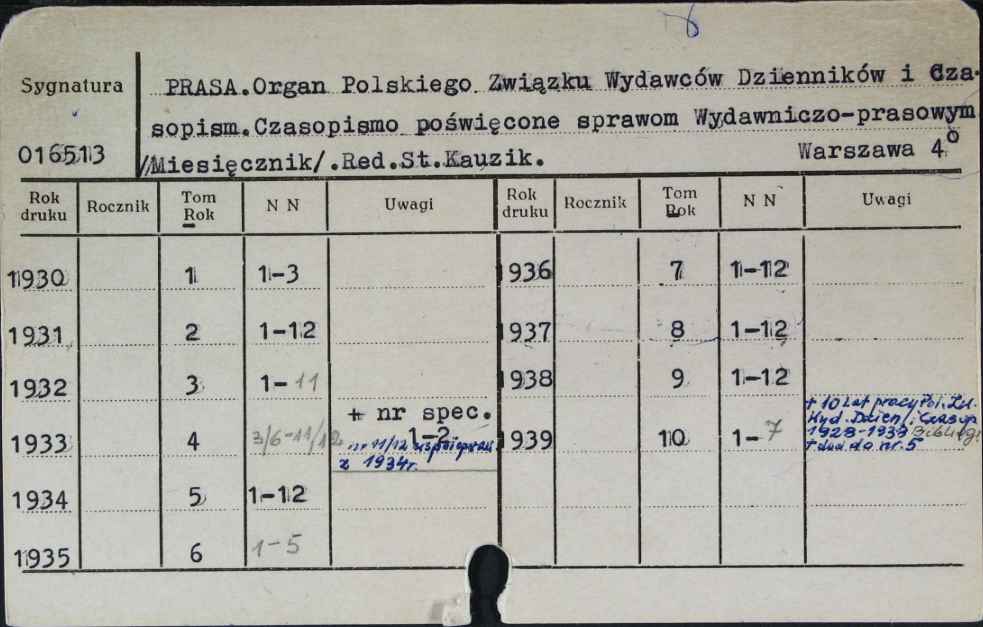 Sygnatura
PRASA.Organ Polskiego Związku Wydawców Dzienników i Cza-
sopism.Czasopismo poświęcone sprawom Wydawniczo-prasowym
016513 /Miesięcznik/.Red.St.Kauzik. Warszawa 4°
Rok druku Rocznik Tom Rok N N Uwagi Rok druku Rocznik Tom Rok N N Uwagi
1930 1 1-3 1936 7 1-12
1931 2 1-12 1937 8 1-12
1932 3 1-11 1938 9 1-12
1933 4 3/6-11/12 + nr spec.
1-2
nr 11/12
z 1934r.
1939 10 1-7
+ 10 Lat pracy Pol. Zw.
Wyd. Dzien. i Czasop
1928-1938 Bibliogr.
+ dod do nr. 5
1934 5 1-12
1935 6 1-5